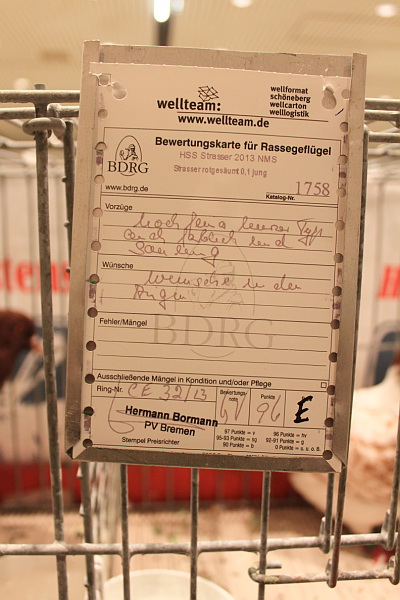 wellteam:
wellformat
schöneberg
wellcarton
welllogistik
www.wellteam.de
Bewertungskarte für Rassegeflügel
HSS Strasser 2013 NMS
Strasser rotgesäumt 0,1 jung
BDRG
www.bdrg.de
1758
Katalog-Nr.
Vorzüge
Hochfeine Typ
auch farblich und
Säumung
Wünsche
in den
Augen
Fehler/Mängel
BDRG
Ausschließende Mängel in Kondition und/oder Pflege
Ring-Nr. CE 32/13
Bewertungs-
note
hv
Punkte
96
E
Hermann Bormann
PV Bremen
Stempel Preisrichter
97 Punkte = v
96 Punkte = hv
95-93 Punkte = sg
92-91 Punkte = g
90 Punkte = b
0 Punkte = u. o. ü.